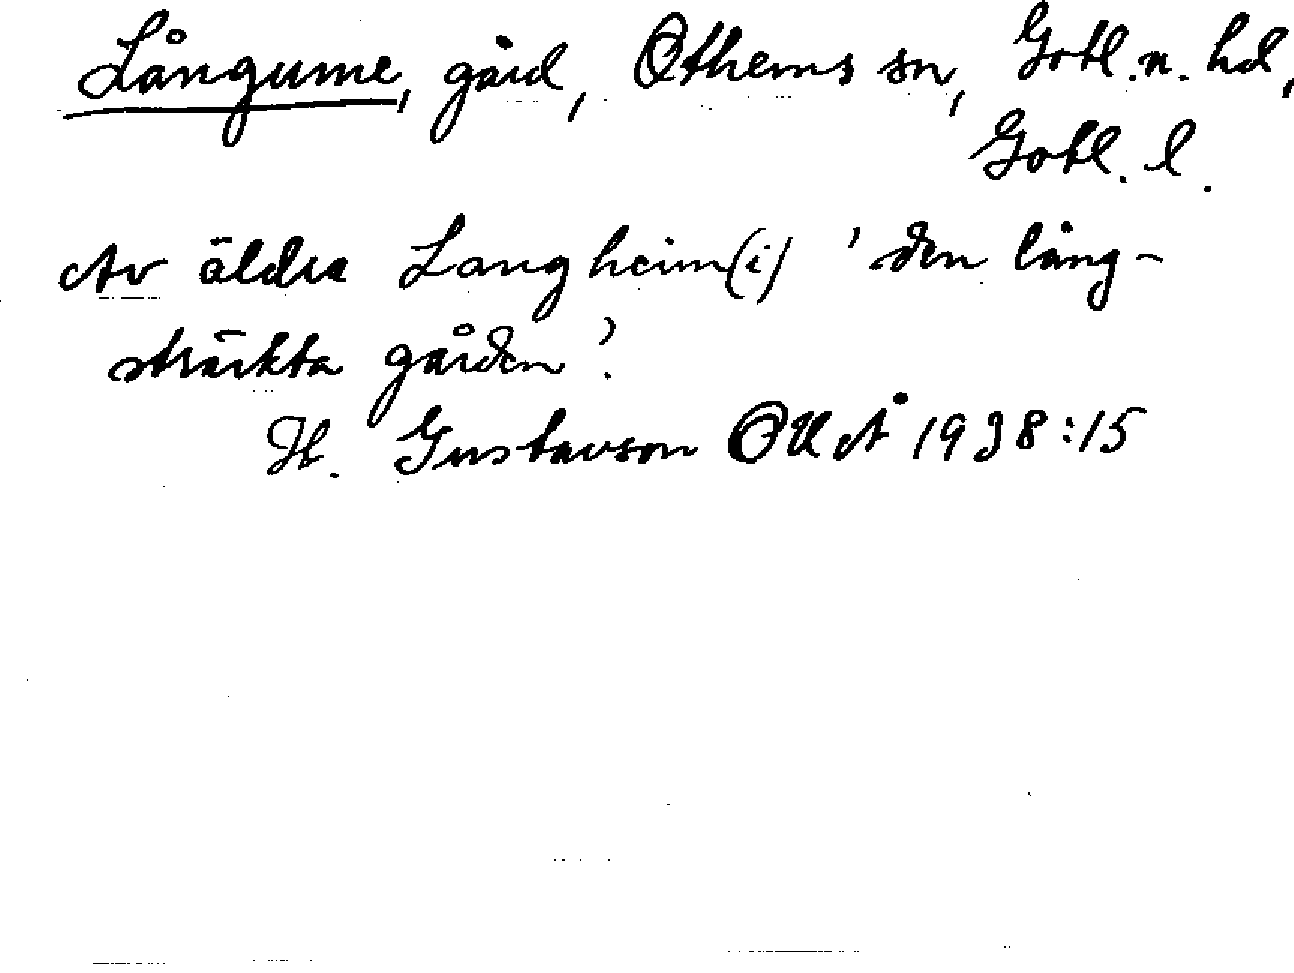 Långume, gård, Othems sn, Gotl. n. hd,
Gotl. l.
Av äldre Langheim(i) 'den lång-
sträckta gården'.
H. Gustavson OUÅ 1938:15